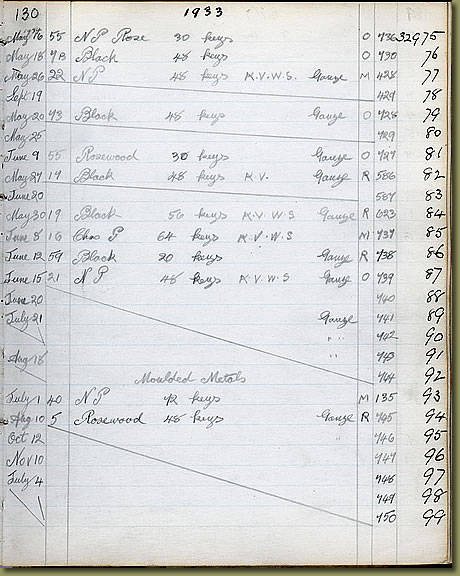 130 1933
May 16 55 N P Rose 30 keys O 736 32975
May 18 78 Black 48 keys O 730 76
May 26 22 N P 48 keys K.V.W.S. Gauze M 428 77
Sept 19 429 78
May 20 73 Black 48 keys Gauze O 728 79
May 25 729 80
June 9 55 Rosewood 30 keys Gauze O 727 81
May 27 19 Black 48 keys K.V. Gauze R 586 82
June 20 587 83
May 30 19 Black 56 keys K.V.W.S Gauze R 623 84
June 8 16 Chro P 64 keys K.V.W.S M 737 85
June 12 59 Black 20 keys Gauze R 738 86
June 15 21 N P 48 keys K.V.W.S Gauze O 739 87
June 20 740 88
July 21 Gauze 741 89
" " 742 90
Aug 18 " 743 91
744 92
Moulded Metals
July 1 40 N P 72 keys M 135 93
Aug 10 5 Rosewood 48 keys Gauze R 745 94
Oct 12 " 746 95
Nov 10 747 96
July 4 748 97
749 98
750 99